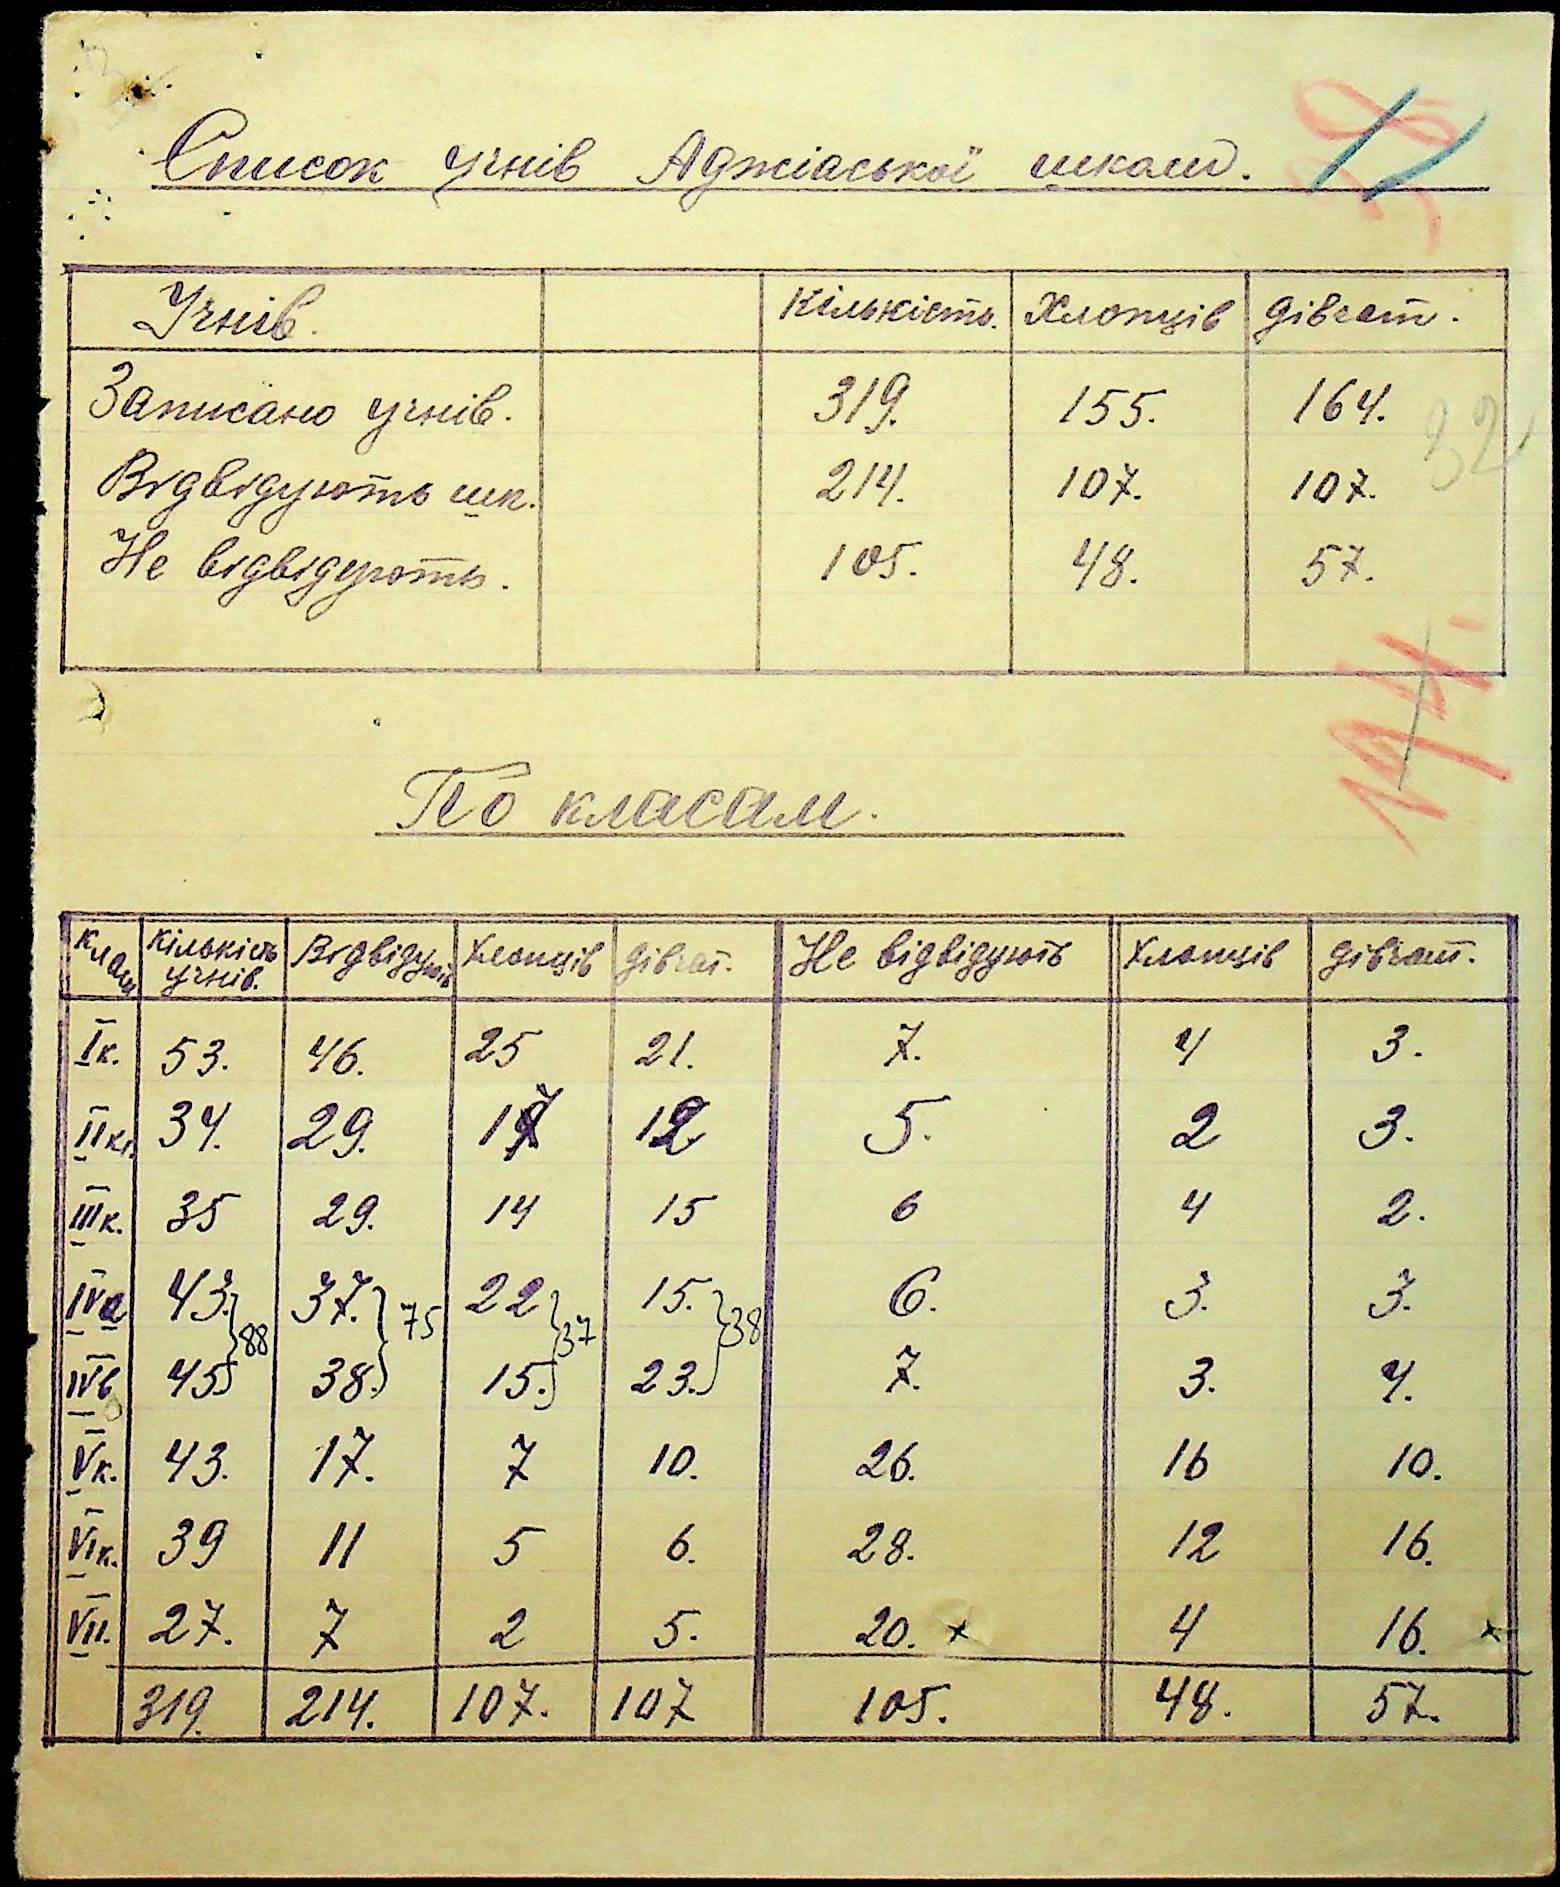 Список учнів Аджіаської школи.
Учнів. Кількість. Хлопців дівчат.
Записано учнів. 319. 155. 164.
Відвідують шк. 214. 107. 107.
Не відвідують. 105. 48. 57.
32
14.
По класам.
Класи Кількість учнів. Відвідують Хлопців дівчат. Не відвідують Хлопців дівчат.
Iк. 53. 46. 25 21. 7. 4 3.
IIкл. 34. 29. 17 12 5. 2 3.
IIIк. 35 29. 14 15 6 4 2.
IVа 43. 37. 22 15. 6. 3. 3.
88 75 37 38
IVб 45 38. 15. 23. 7. 3. 4.
Vк. 43. 17. 7 10. 26. 16 10.
VIк. 39 11 5 6. 28. 12 16.
VII. 27. 7 2 5. 20. x 4 16. x
319. 214. 107. 107 105. 48. 57.